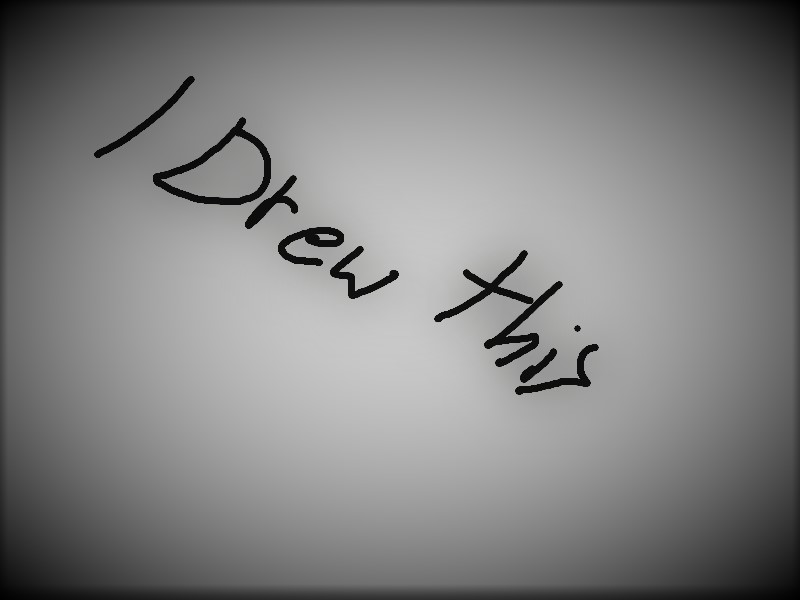 I Drew this